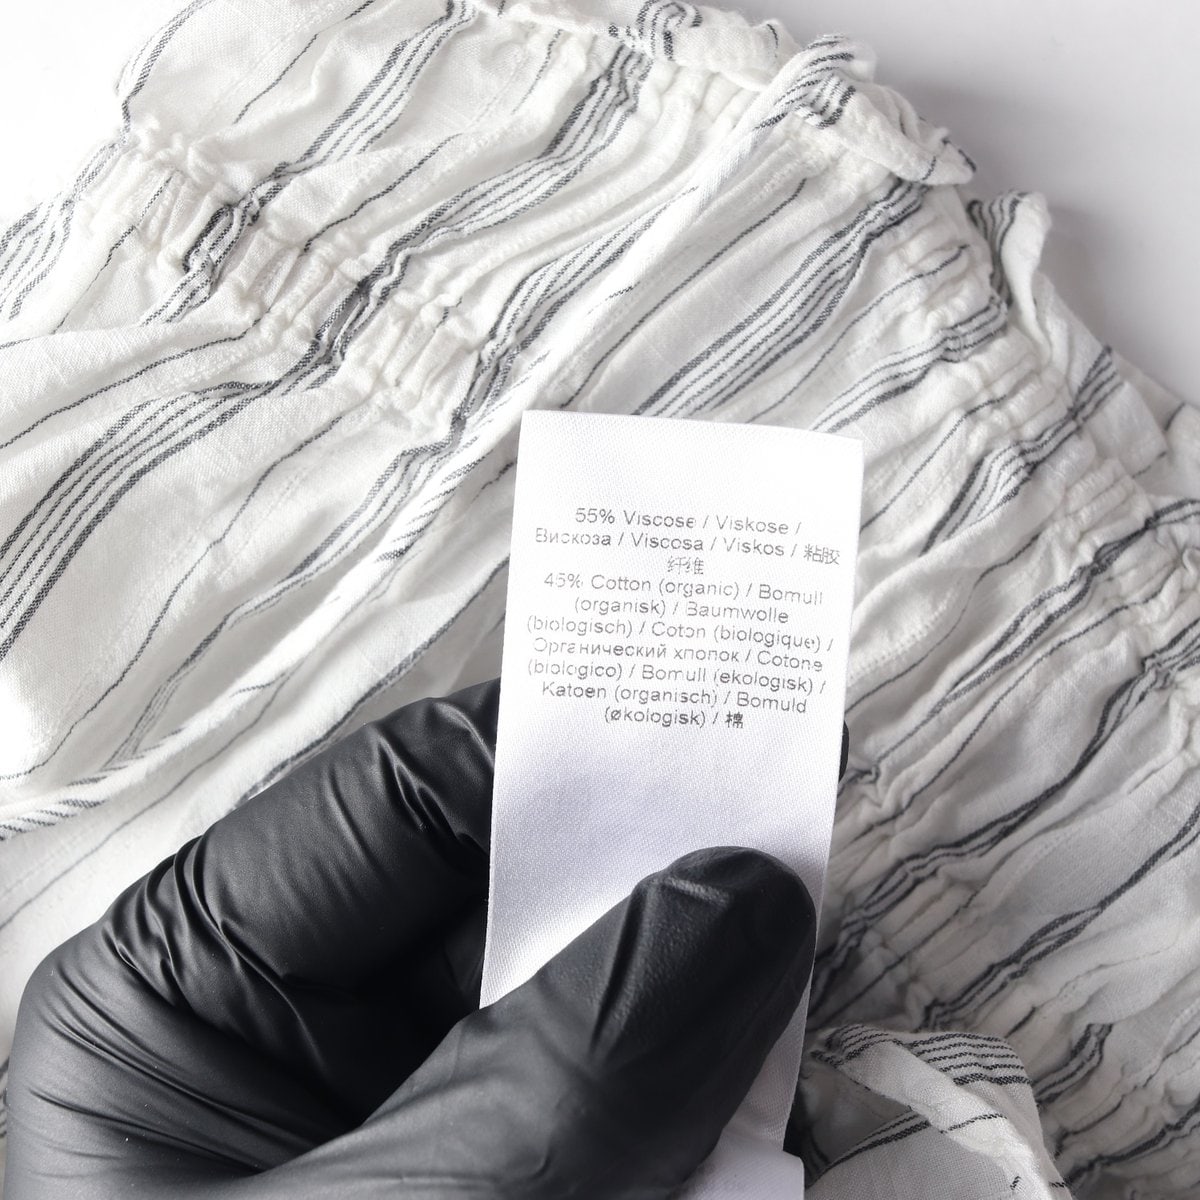 55% Viscose / Viskose /
Вискоза / Viscosa / Viskos / 粘胶
纤维
45% Cotton (organic) / Bomull
(organisk) / Baumwolle
(biologisch) / Coton (biologique) /
Органический хлопок / Cotone
(biologico) / Bomull (ekologisk) /
Katoen (organisch) / Bomuld
(økologisk) / 棉